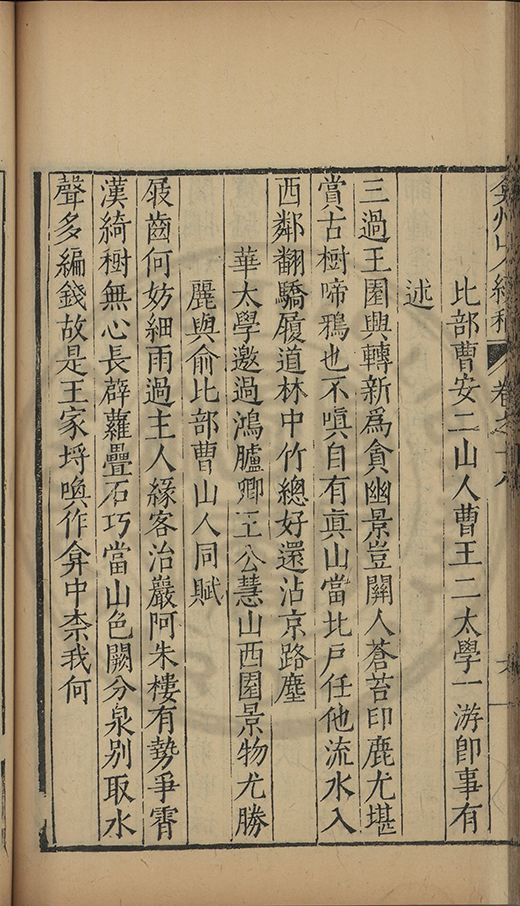 弇州山人續稿 卷之十八
比部曹安二山人曹王二太學一游卽事有
述
三過王園興轉新爲貪幽景豈關人蒼苔印鹿尤堪
賞古樹啼鴉也不嗔自有眞山當北戶任他流水入
西鄰翻驕履道林中竹總好還沾京路塵
華太學邀過鴻臚卿王公慧山西園景物尤勝
麗與俞比部曹山人同賦
屐齒何妨細雨過主人緣客治巖阿朱樓有勢爭霄
漢綺樹無心長薜蘿疊石巧當山色闕分泉別取水
聲多編錢故是王家埒喚作弇中柰我何